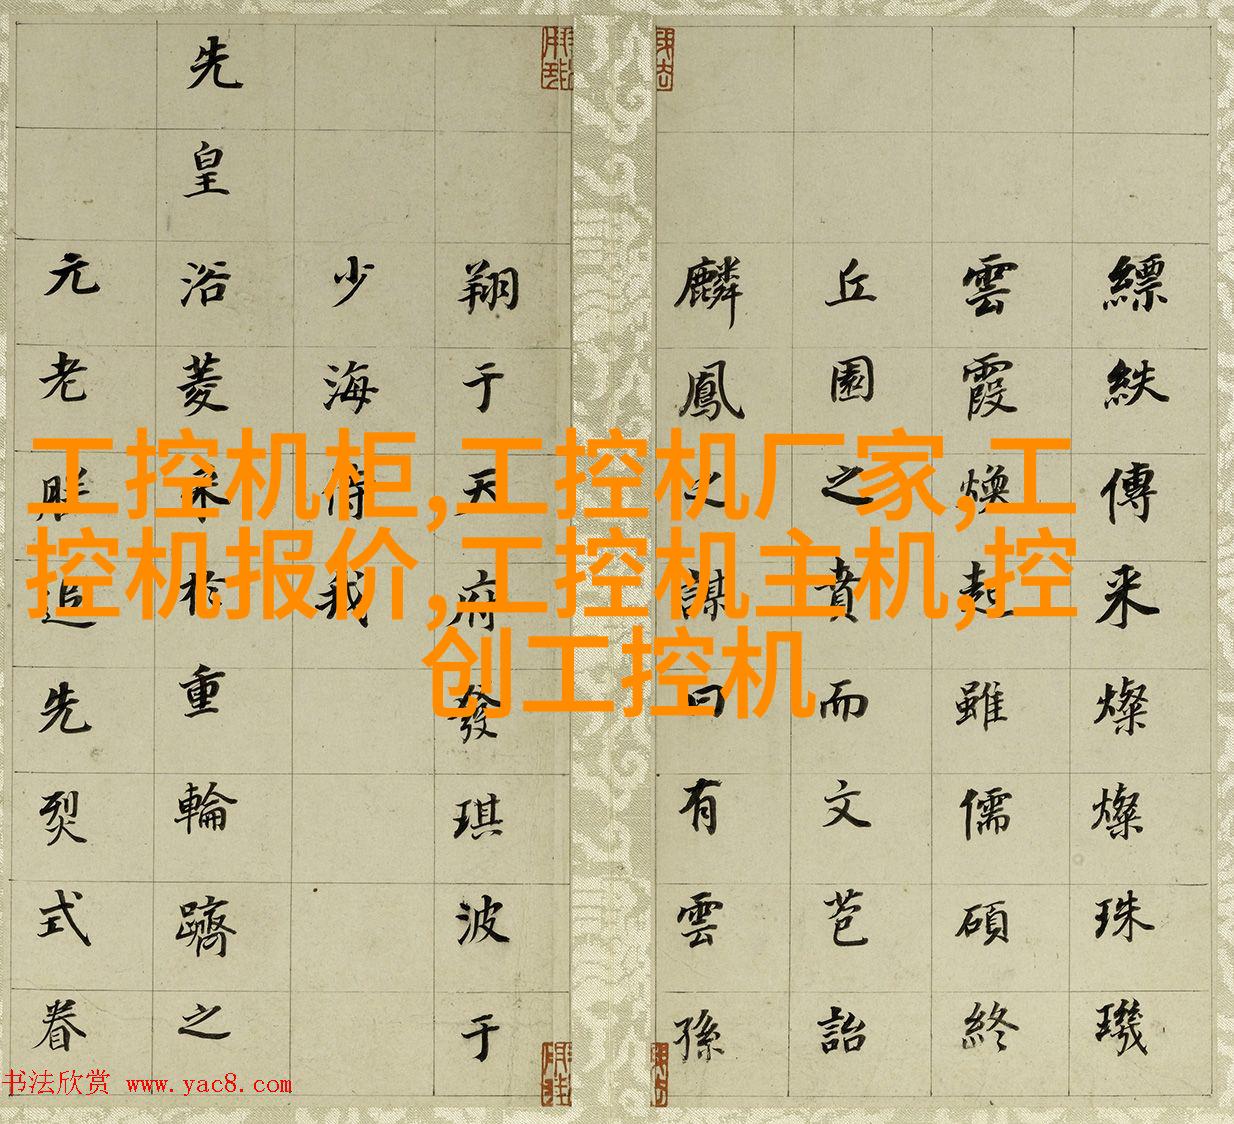 縹紩傳来燦燦珠璣
雲霞煥起雖儒碩終
丘園之賁而文苞詒
麟鳳之謀曰有雲孫
翔于天府發琪波于
少海侍我
先皇浴菱采於重輪躋之
元老追先烈式眷
工控机柜,工控机厂家,工
控机报价,工控机主机,控
创工控机
书法欣赏 www.yac8.com